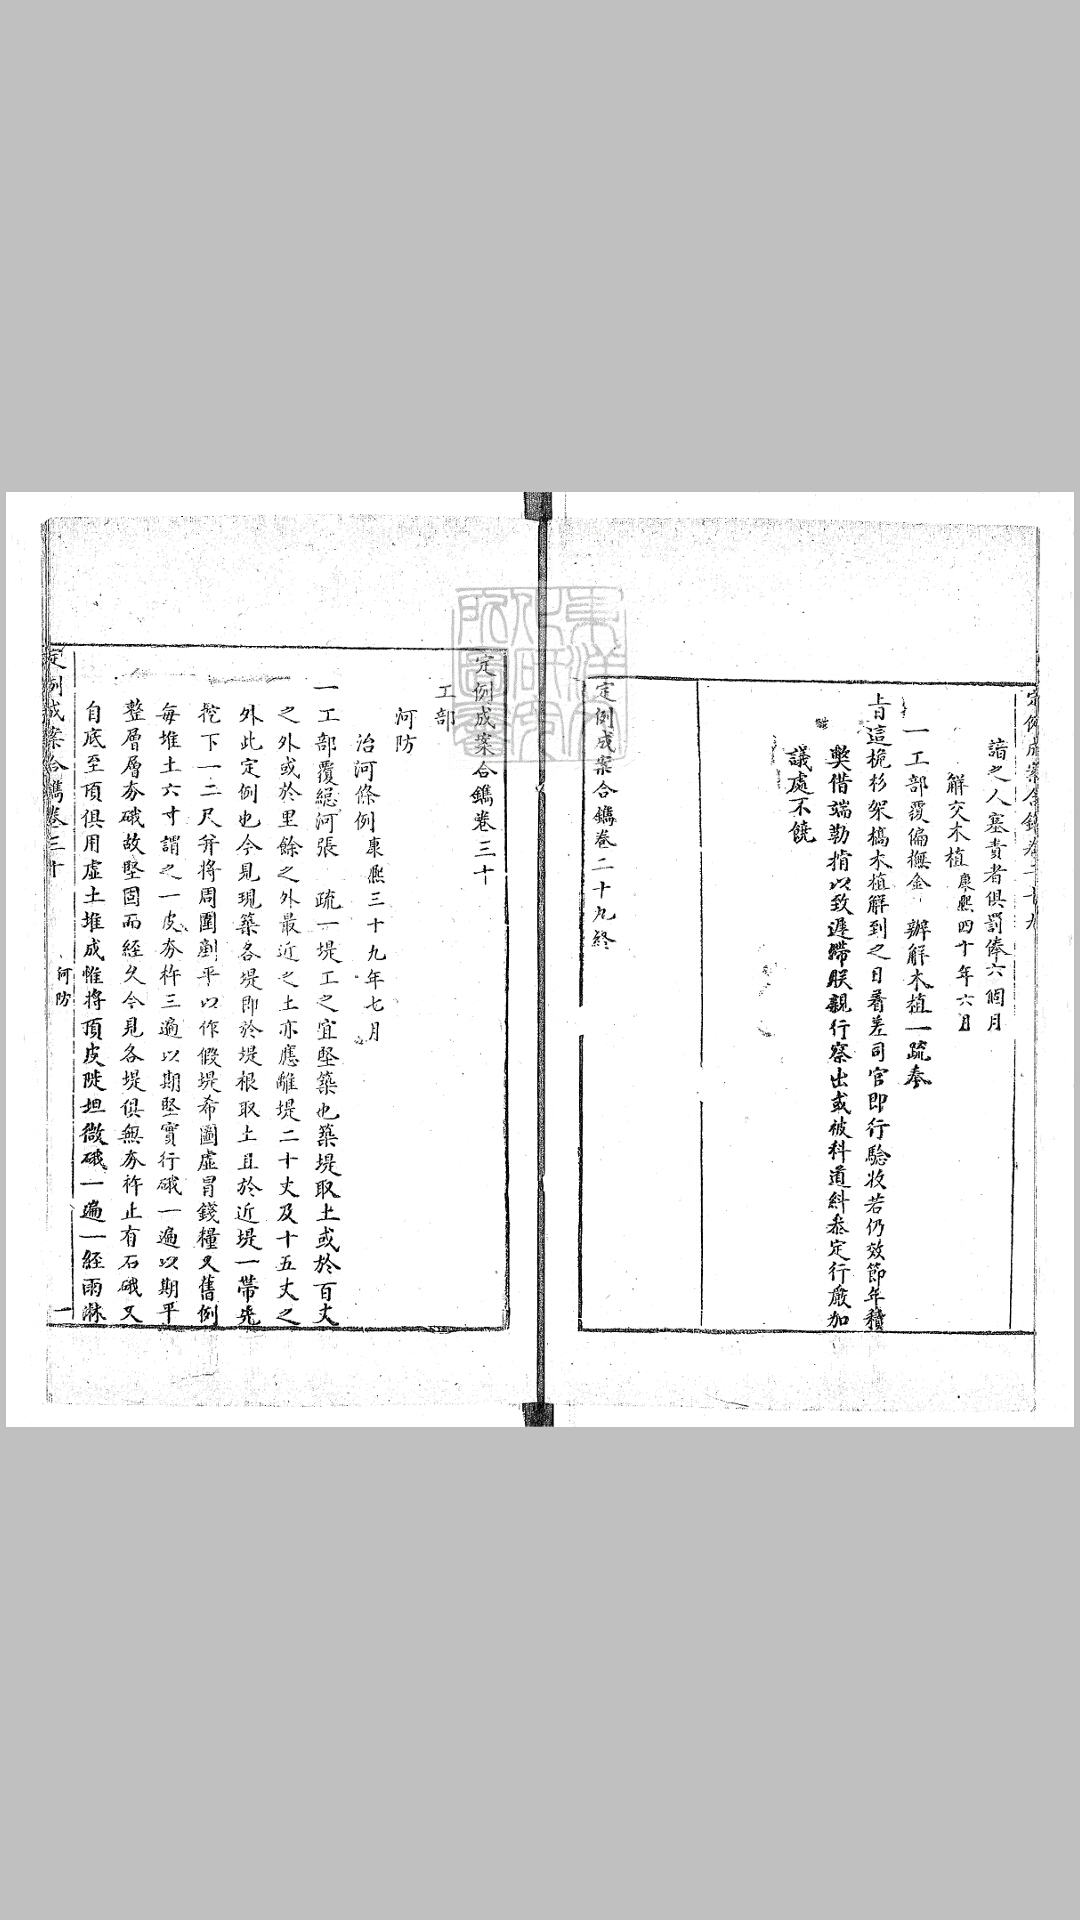 定例成案合鐫卷二十九
諳之人塞責者俱罰俸六個月
解交木植康熙四十年六月
一工部覆偏撫金 辦解木植一疏奉
旨這桅杉架槁木植解到之日着差司官即行驗收若仍效節年積
獘借端勒掯以致遲滯朕親行察出或被科道糾叅定行嚴加
議處不饒
定例成案合鐫卷二十九終
定例成案合鐫卷三十
工部
河防
治河條例康熙三十九年七月
一工部覆總河張 疏一堤工之宜堅築也築堤取土或於百丈
之外或於里餘之外最近之土亦應離堤二十丈及十五丈之
外此定例也今見現築各堤即於堤根取土且於近堤一帶先
挖下一二尺并將周圍剷平以作假堤希圖虛冒錢糧又舊例
每堆土六寸謂之一皮夯杵三遍以期堅實行硪一遍以期平
整層層夯硪故堅固而經久今見各堤俱無夯杵止有石硪又
自底至頂俱用虛土堆成惟將頂皮陡坦微硪一遍一經雨淋
定例成案合鐫卷三十
河防
一